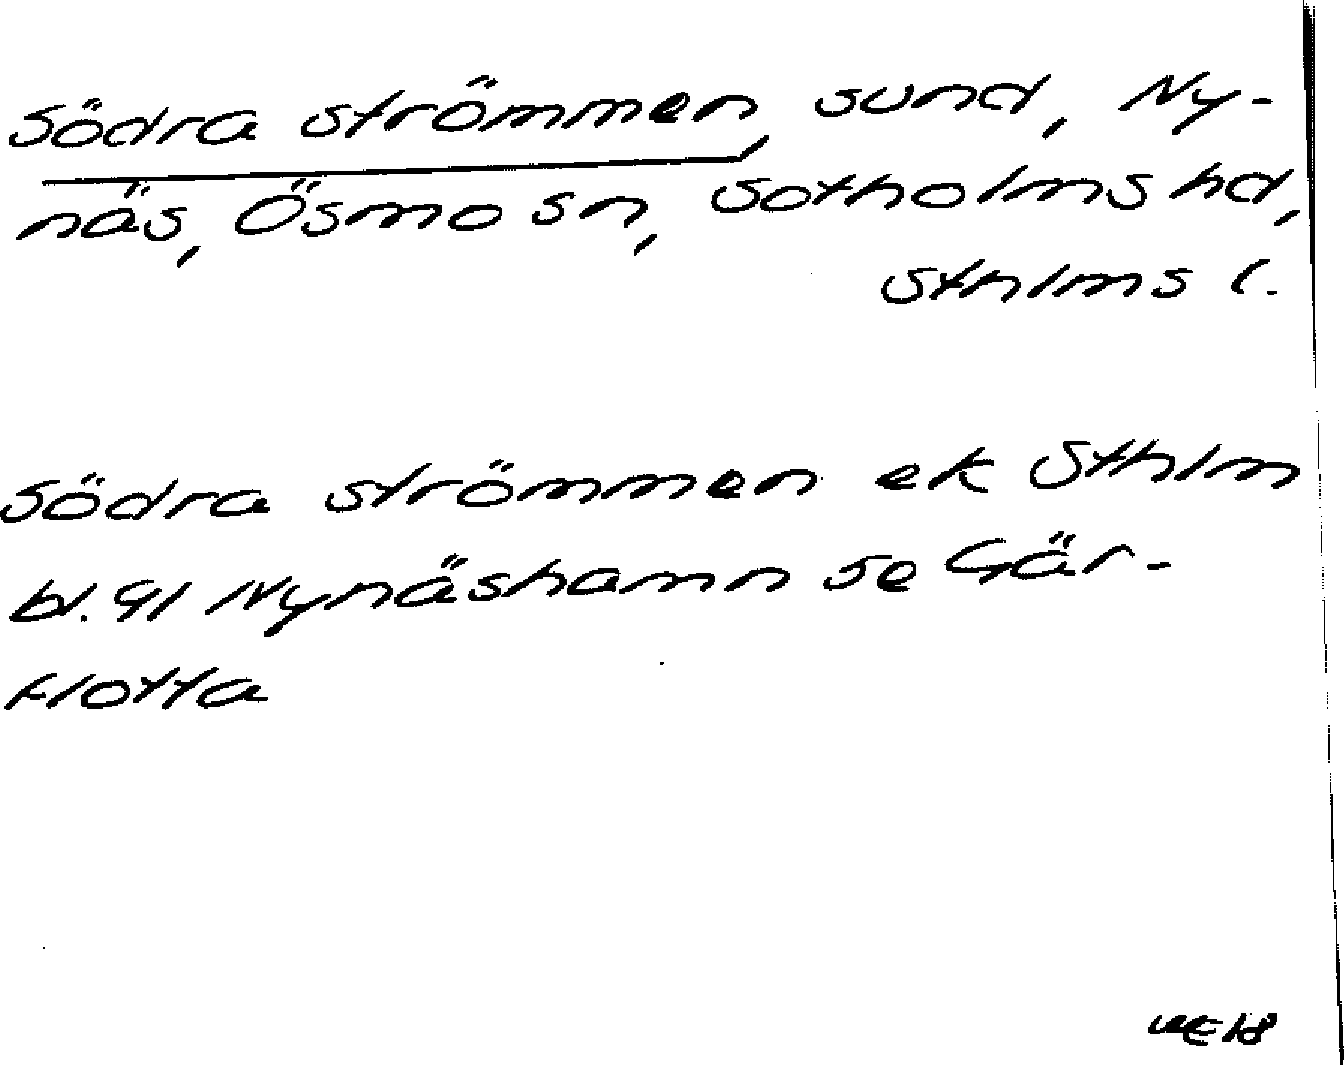 Södra strömmen, sund, Ny-
näs, Ösmo sn, Sotholms hd,
Sthlms l.
Södra strömmen ek Sthlm
bl. 91 Nynäshamn se Gär-
flotta